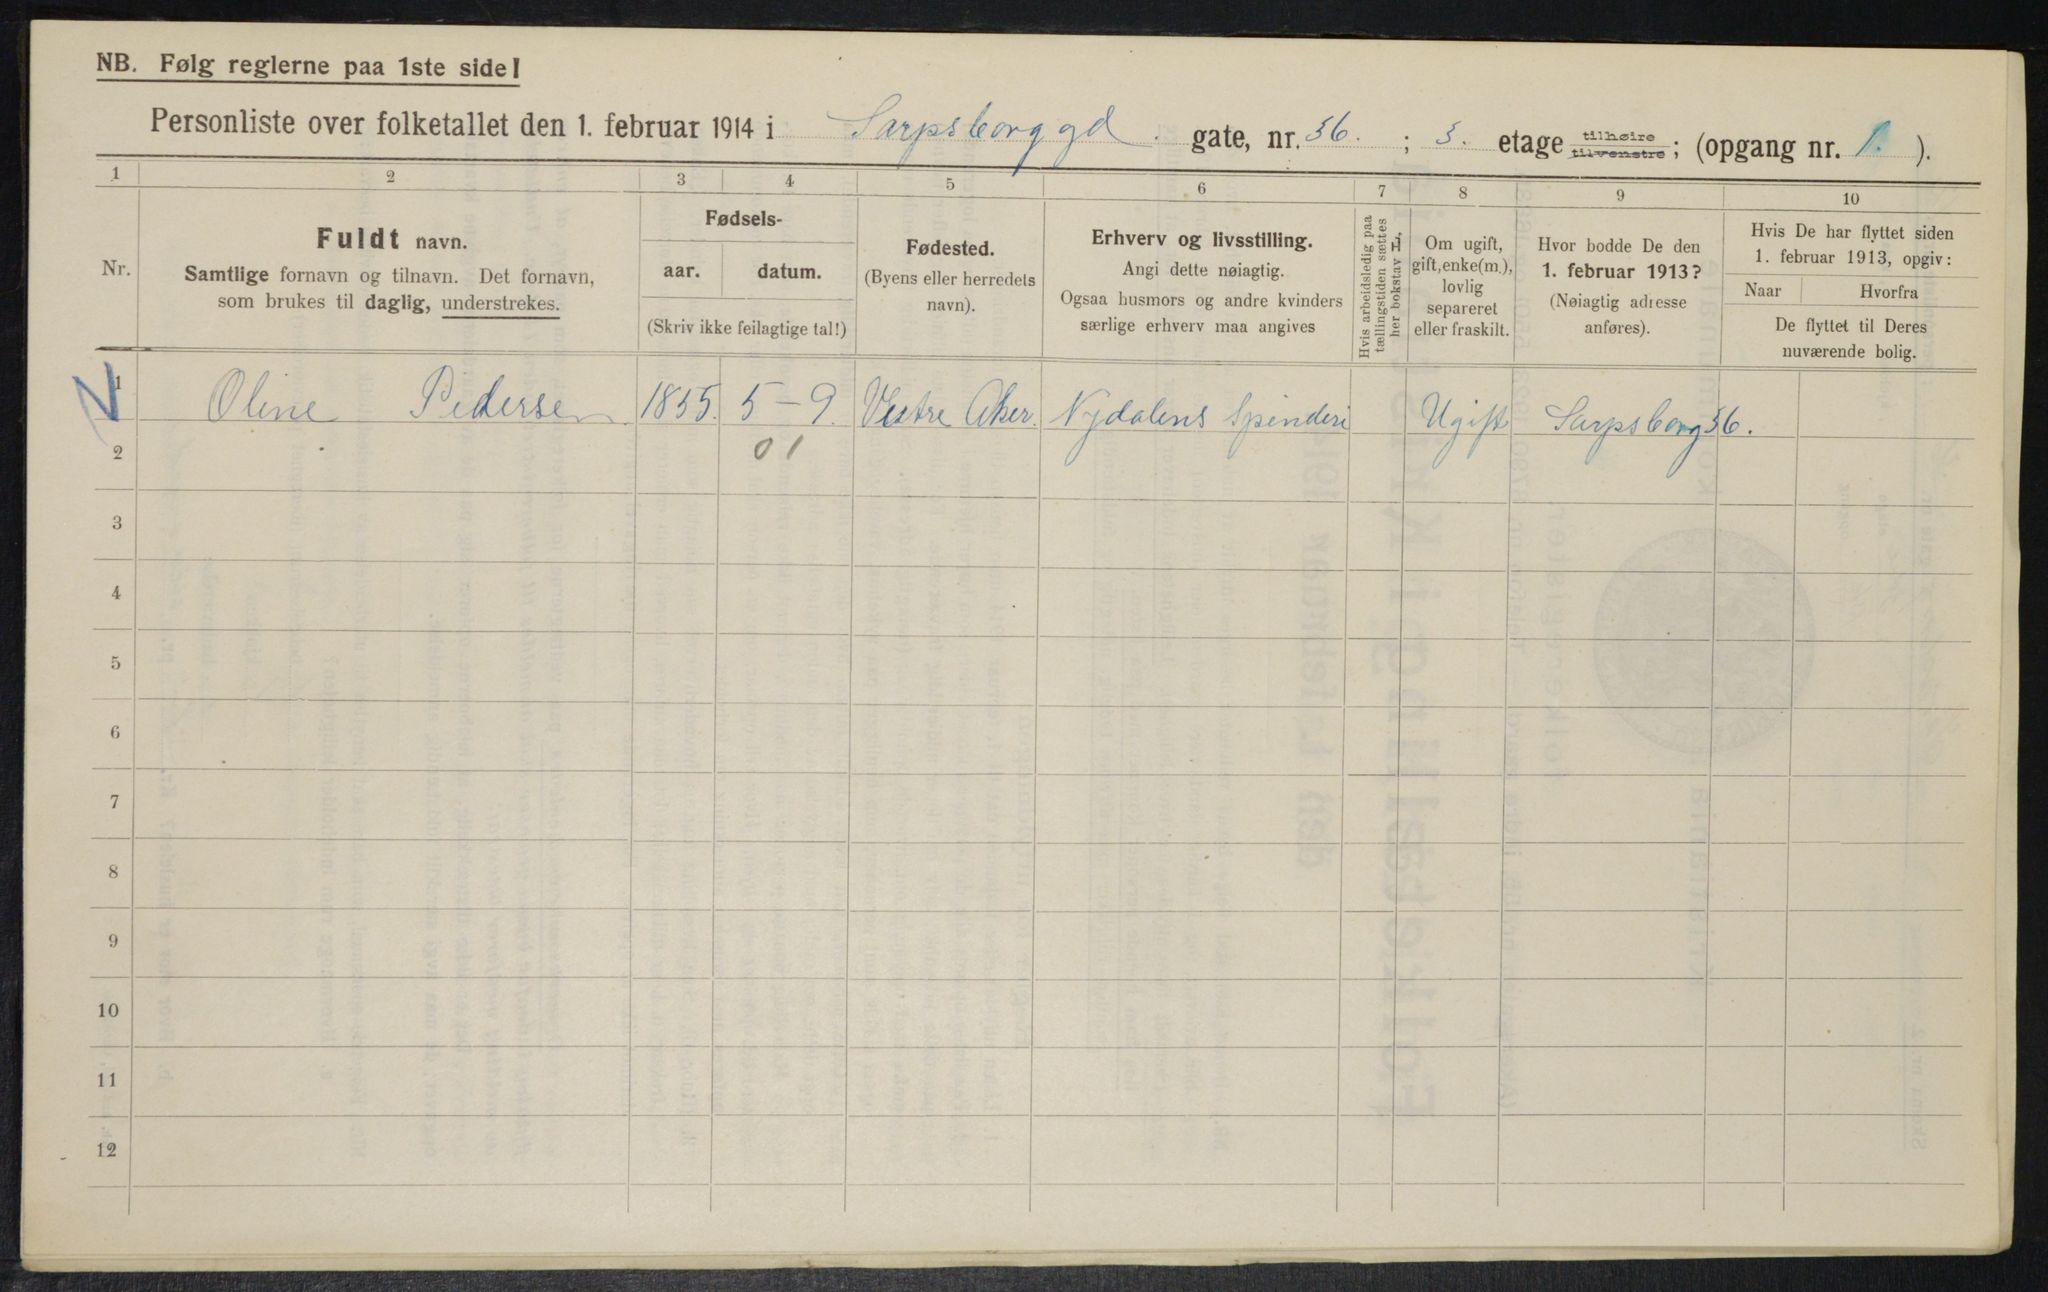 NB. Følg reglerne paa 1ste side!
Personliste over folketallet den 1. februar 1914 i Sarpsborggd. gate, nr. 36. ; 3. etage tilhøire tilvenstre ; (opgang nr. 1. ).
1 2 3 4 5 6 7 8 9 10
Nr.
Fuldt navn.
Samtlige fornavn og tilnavn. Det fornavn,
som brukes til daglig, understrekes.
Fødsels-
aar. datum.
(Skriv ikke feilagtige tal!)
Fødested.
(Byens eller herredets
navn).
Erhverv og livsstilling.
Angi dette nøiagtig.
Ogsaa husmors og andre kvinders
særlige erhverv maa angives
Hvis arbeidsledig paa
tællingstiden sættes
her bokstav L,
Om ugift,
gift, enke(m.),
lovlig
separeret
eller fraskilt.
Hvor bodde De den
1. februar 1913?
(Nøiagtig adresse
anføres).
Hvis De har flyttet siden
1. februar 1913, opgiv:
Naar Hvorfra
De flyttet til Deres
nuværende bolig.
1 Oline Pedersen 1855. 5-9. Vestre Aker. Nydalens Spinderi Ugift Sarpsborg 36.
01
2
3
4
5
6
7
8
9
10
11
12